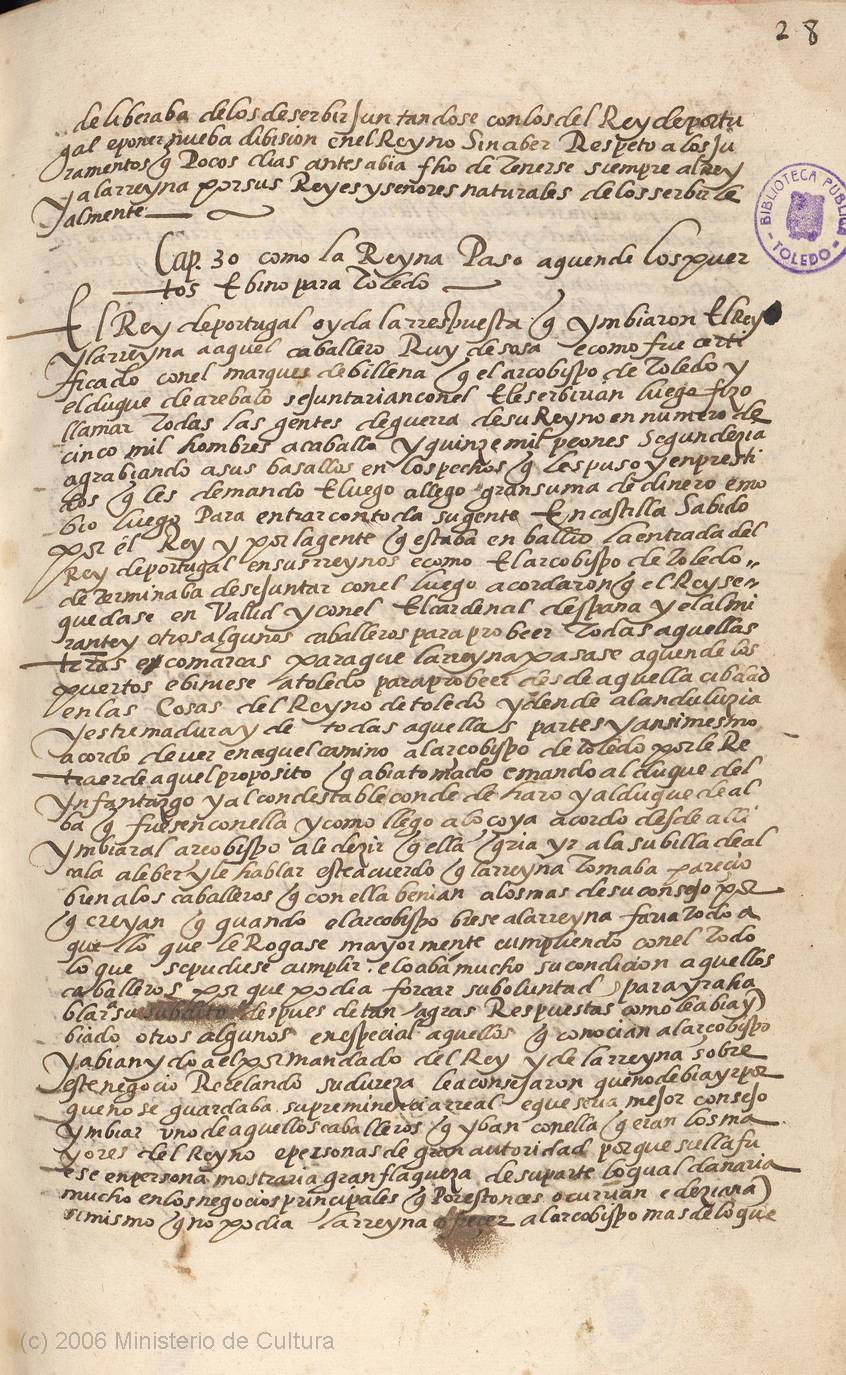 28
deliberaba delos deserbir Juntandose conlos del Rey deportu
gal eponer nueba dibision enel Reyno Sinaber Respeto a los Ju
ramentos q Pocos dias antes abia fho de Tenerse siempre al rey
y a la rreyna por sus Reyes y señores naturales de los serbir le
almente
Cap. 30 como la Reyna Paso aquende los puer
tos E bino para Toledo
El Rey de portugal oyda la rrespuesta q ymbiaron El Rey
y la rreyna a aquel caballero Ruy de sosa ecomo fue certi
ficado conel marques de billena q el arcobispo de Toledo y
el duque de arebalo sejuntarian conel E le serbirian luego fizo
llamar Todas las gentes de guerra de su Reyno en numero de
cinco mil hombres a caballo y quinze mil peones Segun dezia
agrabiando a sus basallos en los pechos q les puso y enpresti
dos q les demando E luego allego gran suma de dinero emo
bio luego Para entrar con toda su gente En castilla Sabido
por él Rey y por la gente q estaba en ballid la entrada del
Rey de portugal en sus rreynos ecomo El arcobispo de Toledo
determinaba desejuntar conel luego acordaron q el Rey se
quedase en Vallid y conel El cardenal despana y el almi
rante y otros algunos caballeros para probeer Todas aquellas
trras e comarcas para que la rreyna pasase aquende los
puertos e biniese a toledo para probeer desde aquella cibdad
en las Cosas del Reyno de toledo y dende al anduluzia
y estremadura y de todas aquellas partes y ansimesmo
acordo de ver en aquel camino al arcobispo de toledo por le Re
traer de aquel proposito q abia tomado e mando al duque del
ynfantazgo y al condestable conde de haro y al duque de al
ba q fuesen conella y como llego a locoya acordo desde alli
ymbiar al arcobispo a le dezir q ella qria yr a la su billa de al
cala a le ber y le hablar este acuerdo q la rreyna Tomaba parecio
bien a los caballeros q con ella benian a los mas de su consejo por
q creyan q quando el arcobispo biese a la rreyna faria Todo a
quello que le Rogase mayormente cumpliendo con el Todo
lo que se pudiese cumplir. e loaba mucho su condicion a quellos
caballeros por que podia forcar su boluntad para yr a ha
blar a su subdito despues de tan agras Respuestas como le abia ym
biado otros algunos en especial aquellos q conocian al arcobispo
y abian ydo a el por mandado del Rey y de la rreyna sobre
este negocio Recelando su dureza le aconsejaron que no debia yr por
que no se guardaba su preminencia rreal e que seria mejor consejo
ymbiar uno de aquellos caballeros q yban conella q eran los ma
yores del Reyno e personas de gran autoridad porque si ella fu
ese en persona mostraria gran flaqueza de su parte lo qual danaria
mucho en los negocios principales q Por estonces ocurrian e dezian a
si mismo q no podia la rreyna ofrecer al arcobispo mas de lo que
BIBLIOTECA PUBLICA
TOLEDO
(c) 2006 Ministerio de Cultura